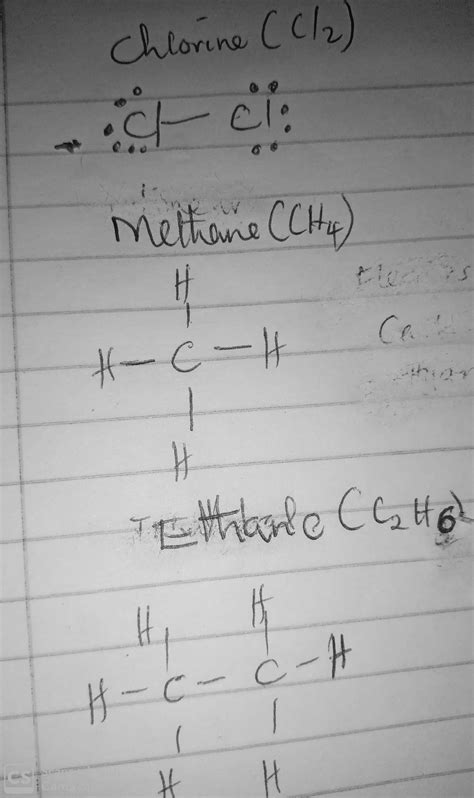 Chlorine (Cl2)
:Cl — Cl:
Methane (CH4)
H
H — C — H
H
Ethane (C2H6)
H H
H — C — C — H
H H
CS